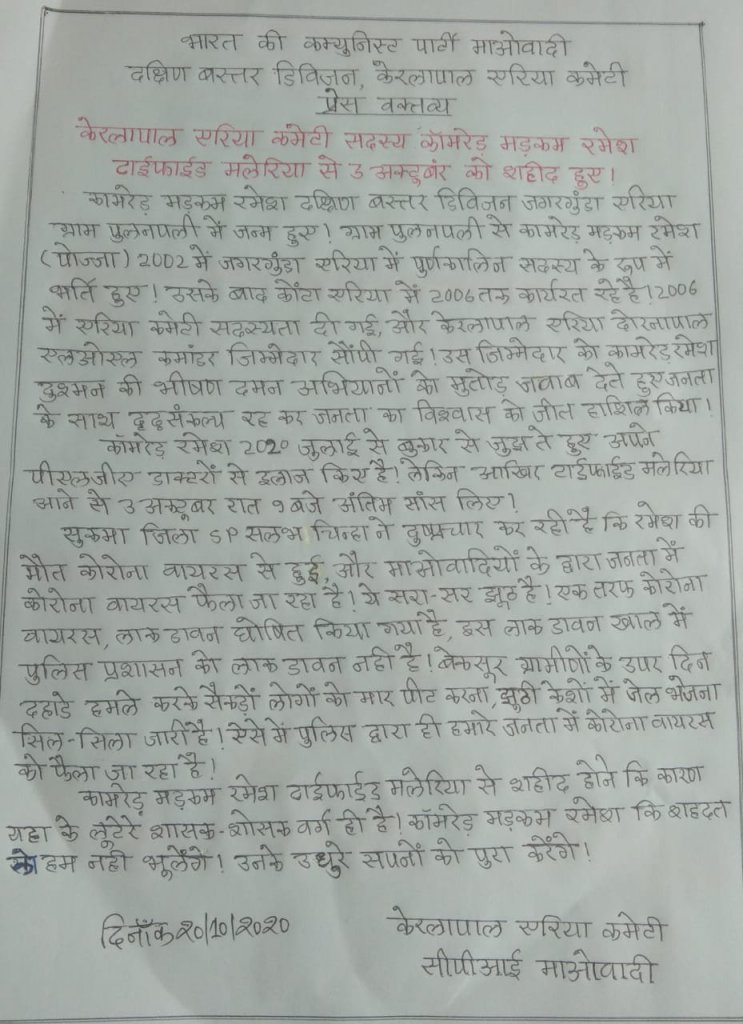 भारत की कम्युनिस्ट पार्टी माओवादी
दक्षिण बस्तर डिविजन, केरलापाल एरिया कमेटी
प्रेस वक्तव्य
केरलापाल एरिया कमेटी सदस्य कॉमरेड़ मड़कम रमेश
टाईफाईड मलेरिया से 3 अक्टूबंर को शहीद हुए!
कामरेड़ मड़कम रमेश दक्षिण बस्तर डिविजन जगरगुंडा एरिया
ग्राम पुलनपली में जन्म हुए! ग्राम पुलनपली से कामरेड़ मड़कम रमेश
(पोज्जा) 2002 में जगरगुंडा एरिया में पुर्णकालिन सदस्य के रूप में
भर्ति हुए! उसके बाद कोंटा एरिया में 2006 तक कार्यरत रहे है! 2006
में एरिया कमेटी सदस्यता दी गई, और केरलापाल एरिया दोरनापाल
एलओएल कमांडर जिम्मेदार सौंपी गई! उस जिम्मेदार को कामरेड़ रमेश
दुश्मन की भीषण दमन अभियानों को मुतोड़ जवाब देते हुए जनता
के साथ दृढ़संकल्प रह कर जनता का विश्वास को जीत हाशिल किया!
कॉमरेड़ रमेश 2020 जुलाई से बुकार से जुझ ते हुए अपने
पीएलजीए डाक्टरों से इलाज किए है! लेकिन आखिर टाईफाईड मलेरिया
आने से 3 अक्टूबर रात 9 बजे अंतिम सांस लिए!
सुकमा जिला SP सलभ चिन्हा ने दुष्प्रचार कर रही है कि रमेश की
मौत कोरोना वायरस से हुई, और माओवादियों के द्वारा जनता में
कोरोना वायरस फैला जा रहा है! ये सरा-सर झूठ है! एक तरफ कोरोना
वायरस, लाक डावन घोषित किया गया है, इस लाक डावन खाल में
पुलिस प्रशासन को लाक डावन नही है! बेकसूर ग्रामीणों के उपर दिन
दहाडे हमले करके सैकड़ों लोगों को मार पीट करना, झूठी केशों में जेल भेजना
सिल-सिला जारी है! ऐसे में पुलिस द्वारा ही हमारे जनता में कोरोना वायरस
को फैला जा रहा है!
कामरेड़ मड़कम रमेश टाईफाईड़ मलेरिया से शहीद होने कि कारण
यहा के लूटेरे शासक-शोसक वर्ग ही है! कॉमरेड़ मड़कम रमेश कि शहदत
को हम नही भूलेंगे! उनके उधुरे सपनों को पुरा करेंगे!
दिनाँक 20/10/2020
केरलापाल एरिया कमेटी
सीपीआई माओवादी